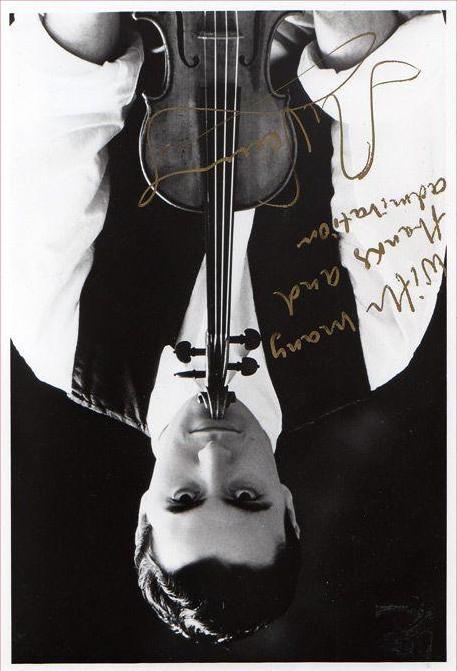 With many
thanks and
admiration